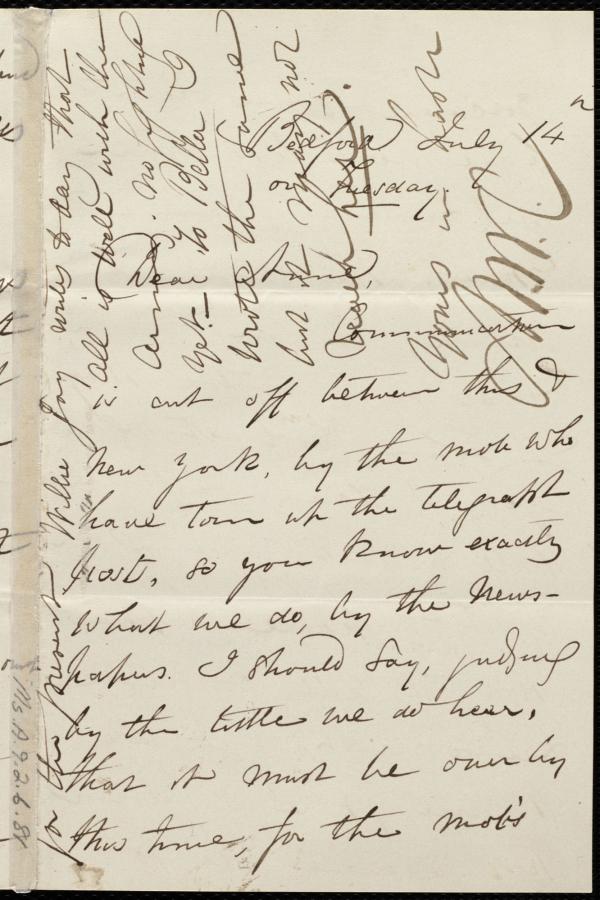 Bedford July 14
on Tuesday.
Dear Anne,
Communication
is cut off between this &
New York, by the mob who
have torn up the telegraph
posts, so you know exactly
what we do, by the news-
papers. I should say, judging
by the little we do hear,
that it must be over by
this time, for the mob's
for the present Willie Jay writes to day that
all is well with the
army. no fighting
yet. To Bella I
wrote the same
but it may not
reach her.
Yours in haste
Ms.A.9.2.6.81